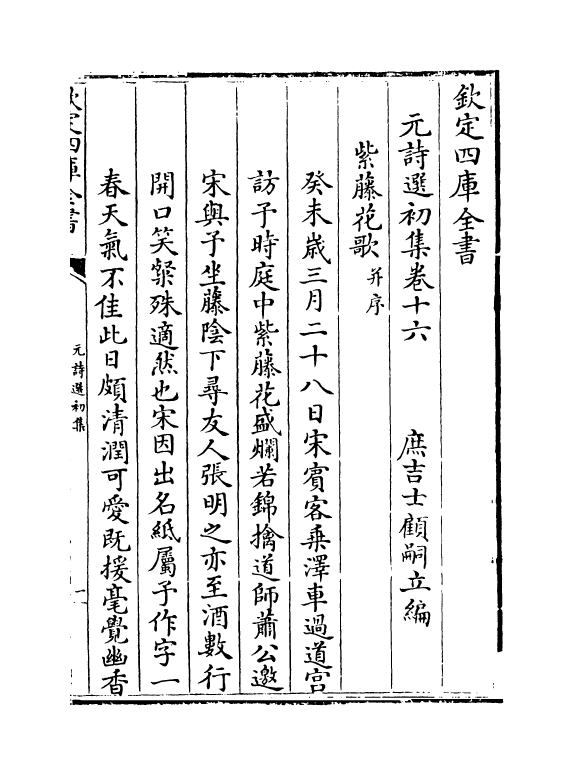 欽定四庫全書
元詩選初集卷十六　庶吉士顧嗣立編
紫藤花歌并序
癸未歲三月二十八日宋賓客乗澤車過道宫
訪予時庭中紫藤花盛爛若錦擒道師蕭公邀
宋與予坐藤陰下尋友人張明之亦至酒數行
開口笑粲殊適然也宋因出名紙屬予作字一
春天氣不佳此日頗清潤可愛既援毫覺幽香
欽定四庫全書
元詩選初集
一